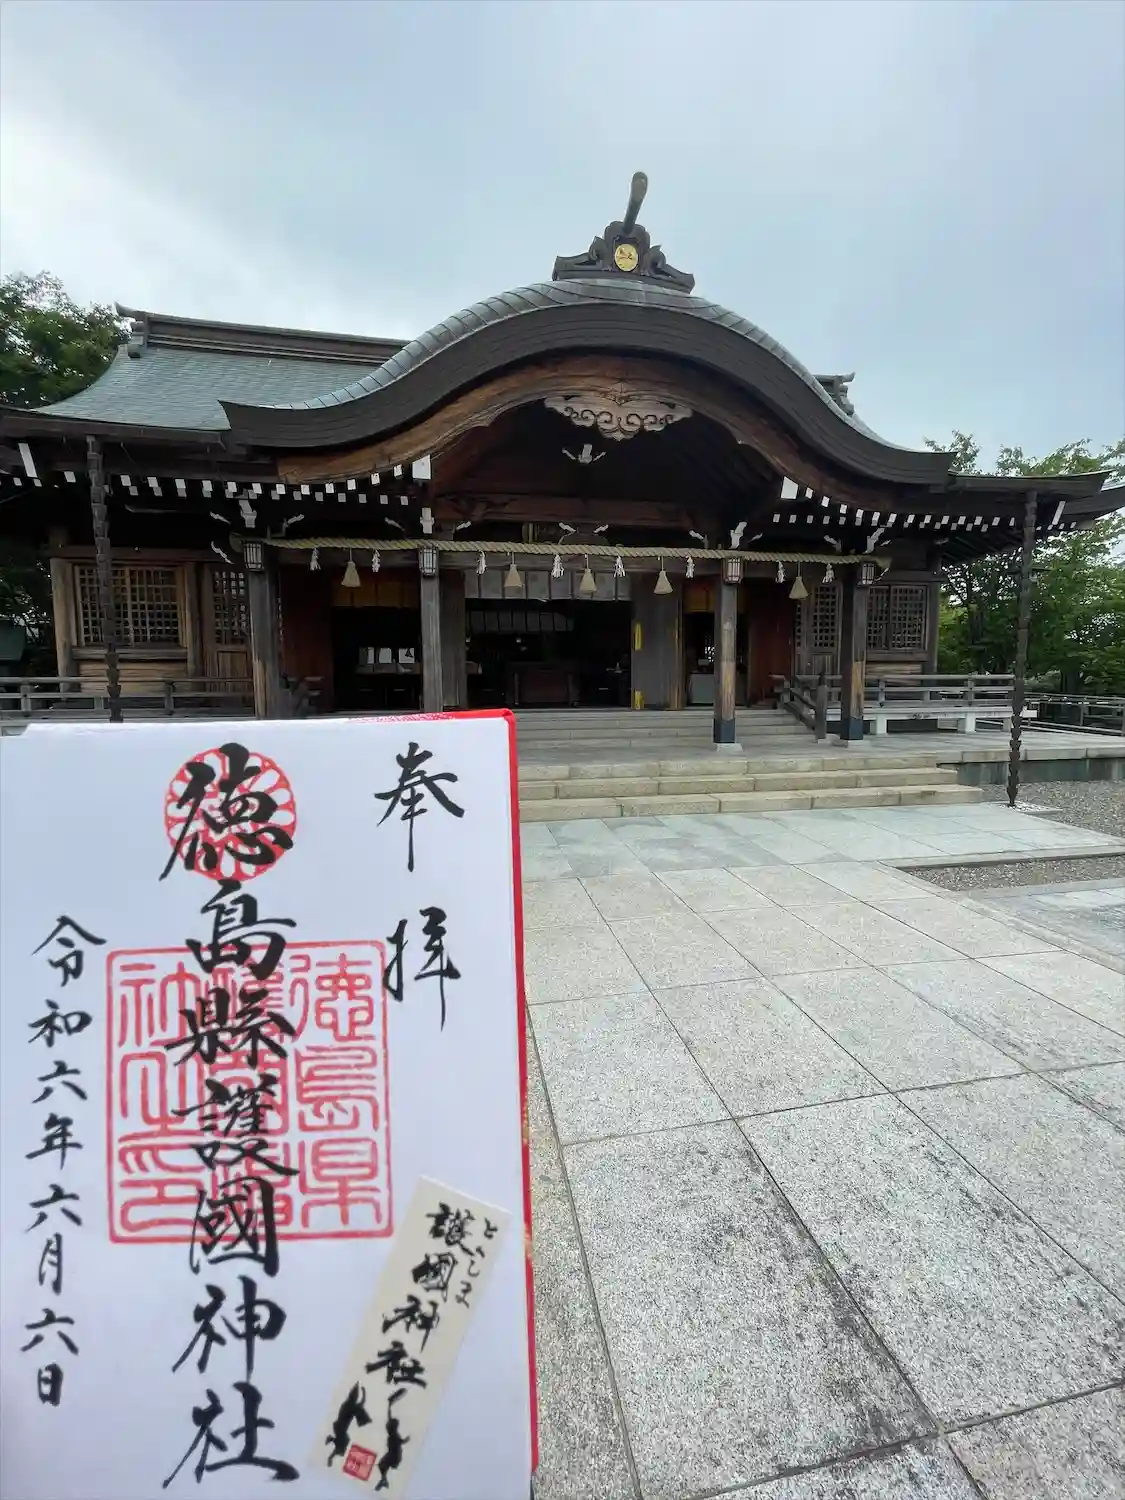 奉拝
徳島縣護國神社
徳島県
護國神
社之印
令和六年六月六日
とくしま
護國神社